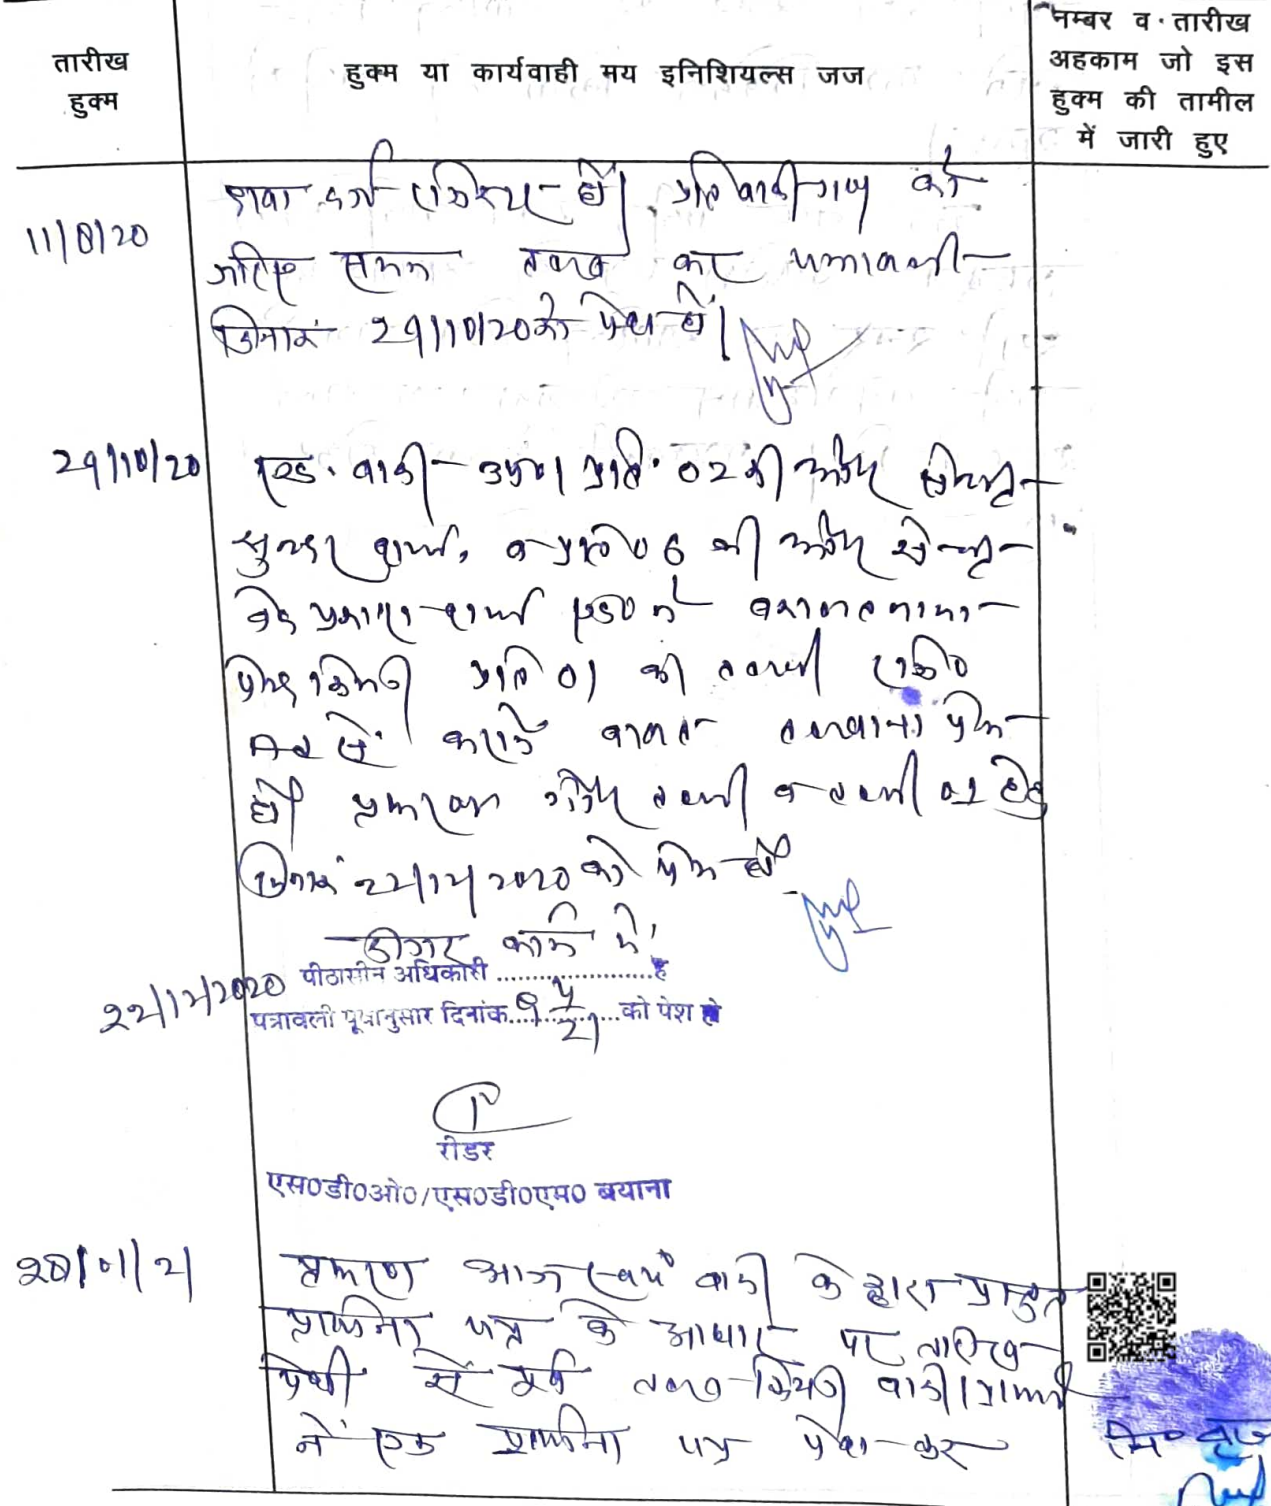 तारीख
हुक्म
हुक्म या कार्यवाही मय इनिशियल्स जज
नम्बर व तारीख
अहकाम जो इस
हुक्म की तामील
में जारी हुए
11/8/20
दावा दर्ज रजिस्टर हो। प्रतिवादीगण को
जरिए समन तलब कर पत्रावली
दिनांक 29/10/20 को पेश हो।
29/10/20
एड. वादी उप० प्रति. 02 की ओर से श्री
सुन्दर शर्मा, व प्रति० 6 की ओर से श्री
वेद प्रकाश शर्मा एड० ने वकालतनामा
पेश किया। प्रति 01 की तलबी रजि०
AD से कराने बाबत तलवाना पेश
हो। प्रकरण शेष तलबी व तलबी 01 हेतु
दिनांक 22/12/2020 को पेश हो
22/12/2020
कार्य में
पीठासीन अधिकारी ..................... है
पत्रावली पूर्वानुसार दिनांक..............को पेश हो
रीडर
एस०डी०ओ०/एस०डी०एम० बयाना
28/01/21
प्रकरण आज स्वयं वादी के द्वारा प्रस्तुत
प्रार्थना पत्र के आधार पर तारीख
पेशी से पूर्व तलब किया। वादी/प्रार्थी
ने एक प्रार्थना पत्र पेश कर